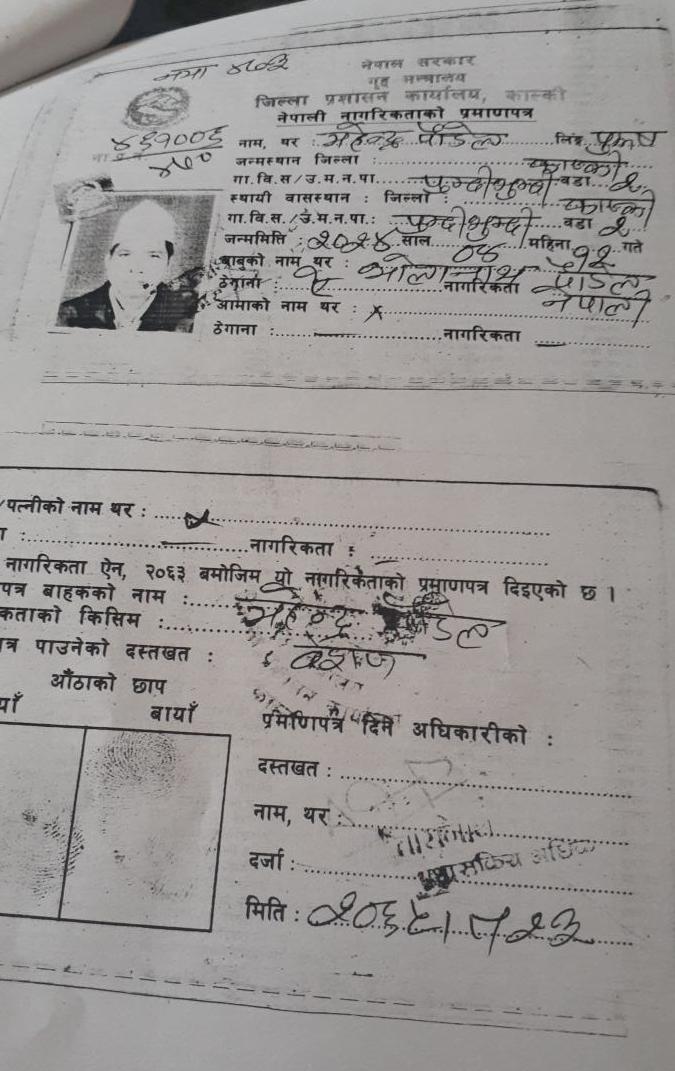 नेपाल सरकार
गृह मन्त्रालय
जिल्ला प्रशासन कार्यालय, कास्की
नेपाली नागरिकताको प्रमाणपत्र
नाम, थर : महेन्द्र पौडेल लिङ्ग पुरुष
जन्मस्थान जिल्ला : कास्की
गा.वि.स/उ.म.न.पा. पुम्दीभुम्दी वडा २
स्थायी वासस्थान : जिल्ला : कास्की
गा.वि.स./उ.म.न.पा.: पुम्दीभुम्दी वडा २
जन्ममिति : २०२४ साल ०४ महिना १२ गते
बाबुको नाम थर : भोलानाथ पौडेल
ठेगाना : नागरिकता नेपाली
आमाको नाम थर : x
ठेगाना : नागरिकता
पत्नीको नाम थर : x
नागरिकता :
नागरिकता ऐन, २०६३ बमोजिम यो नागरिकताको प्रमाणपत्र दिइएको छ ।
पत्र बाहकको नाम : महेन्द्र पौडेल
कताको किसिम : वंशज
त्र पाउनेको दस्तखत :
औंठाको छाप
याँ बायाँ
प्रमाणपत्र दिने अधिकारीको :
दस्तखत :
नाम, थर :
दर्जा :
मिति :